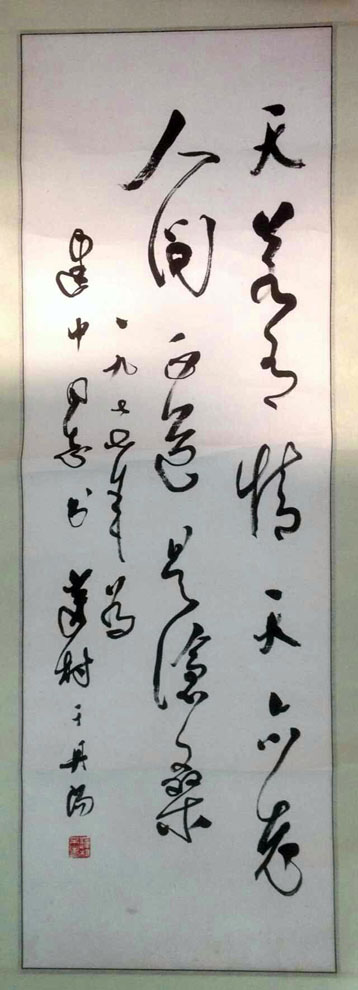 天若有情天亦老
人间正道是沧桑
一九七年为
建中同志书村于